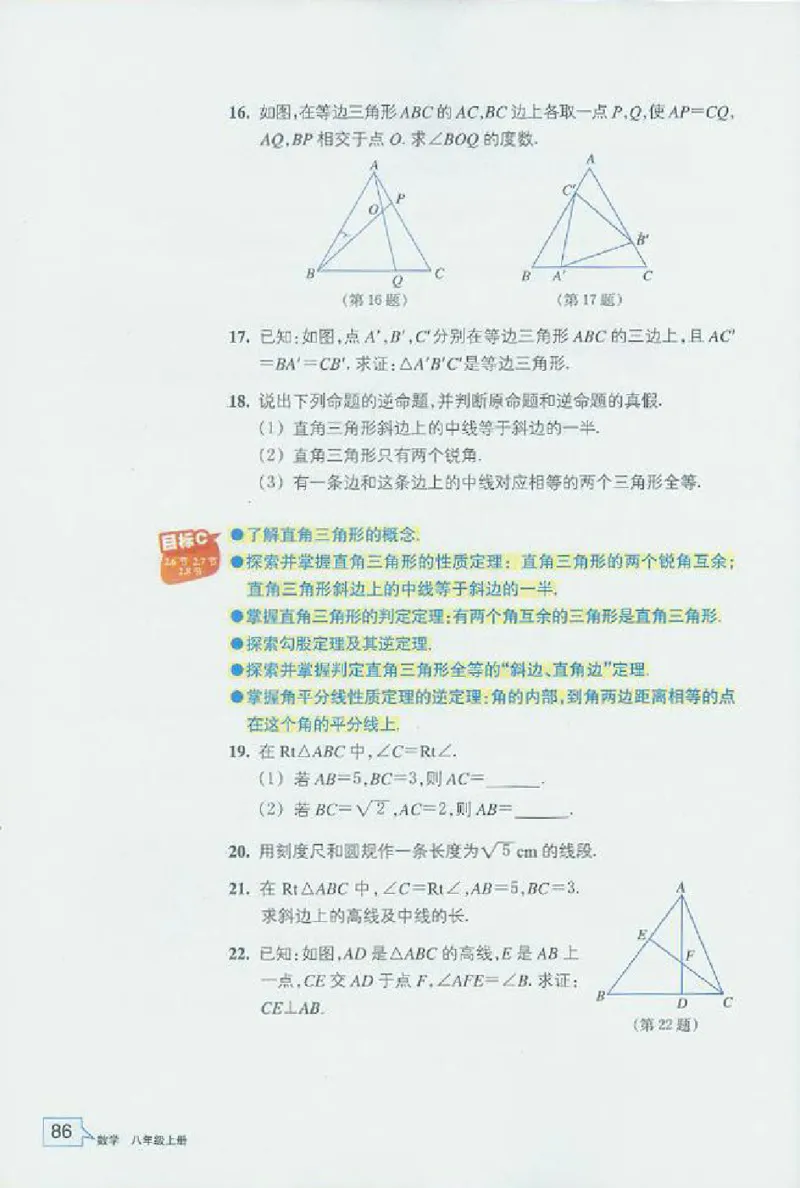 16. 如图,在等边三角形 ABC 的 AC,BC 边上各取一点 P,Q,使 AP=CQ,
AQ,BP 相交于点 O. 求∠BOQ 的度数.
A
P
O
B
Q
C
(第 16 题)
A
C′
B′
B
A′
C
(第 17 题)
17. 已知:如图,点 A′,B′,C′分别在等边三角形 ABC 的三边上,且 AC′
=BA′=CB′. 求证:△A′B′C′是等边三角形.
18. 说出下列命题的逆命题,并判断原命题和逆命题的真假.
(1) 直角三角形斜边上的中线等于斜边的一半.
(2) 直角三角形只有两个锐角.
(3) 有一条边和这条边上的中线对应相等的两个三角形全等.
目标C
2.6 节 2.7 节
2.8 节
●了解直角三角形的概念.
●探索并掌握直角三角形的性质定理：直角三角形的两个锐角互余;
直角三角形斜边上的中线等于斜边的一半.
●掌握直角三角形的判定定理:有两个角互余的三角形是直角三角形.
●探索勾股定理及其逆定理.
●探索并掌握判定直角三角形全等的“斜边、直角边”定理.
●掌握角平分线性质定理的逆定理:角的内部,到角两边距离相等的点
在这个角的平分线上.
19. 在 Rt△ABC 中,∠C=Rt∠.
(1) 若 AB=5,BC=3,则 AC=______.
(2) 若 BC=√2,AC=2,则 AB=______.
20. 用刻度尺和圆规作一条长度为√5 cm 的线段.
21. 在 Rt△ABC 中,∠C=Rt∠,AB=5,BC=3.
求斜边上的高线及中线的长.
22. 已知:如图,AD 是△ABC 的高线,E 是 AB 上
一点,CE 交 AD 于点 F,∠AFE=∠B. 求证:
CE⊥AB.
A
E
F
B
D
C
(第 22 题)
86
数学 八年级上册